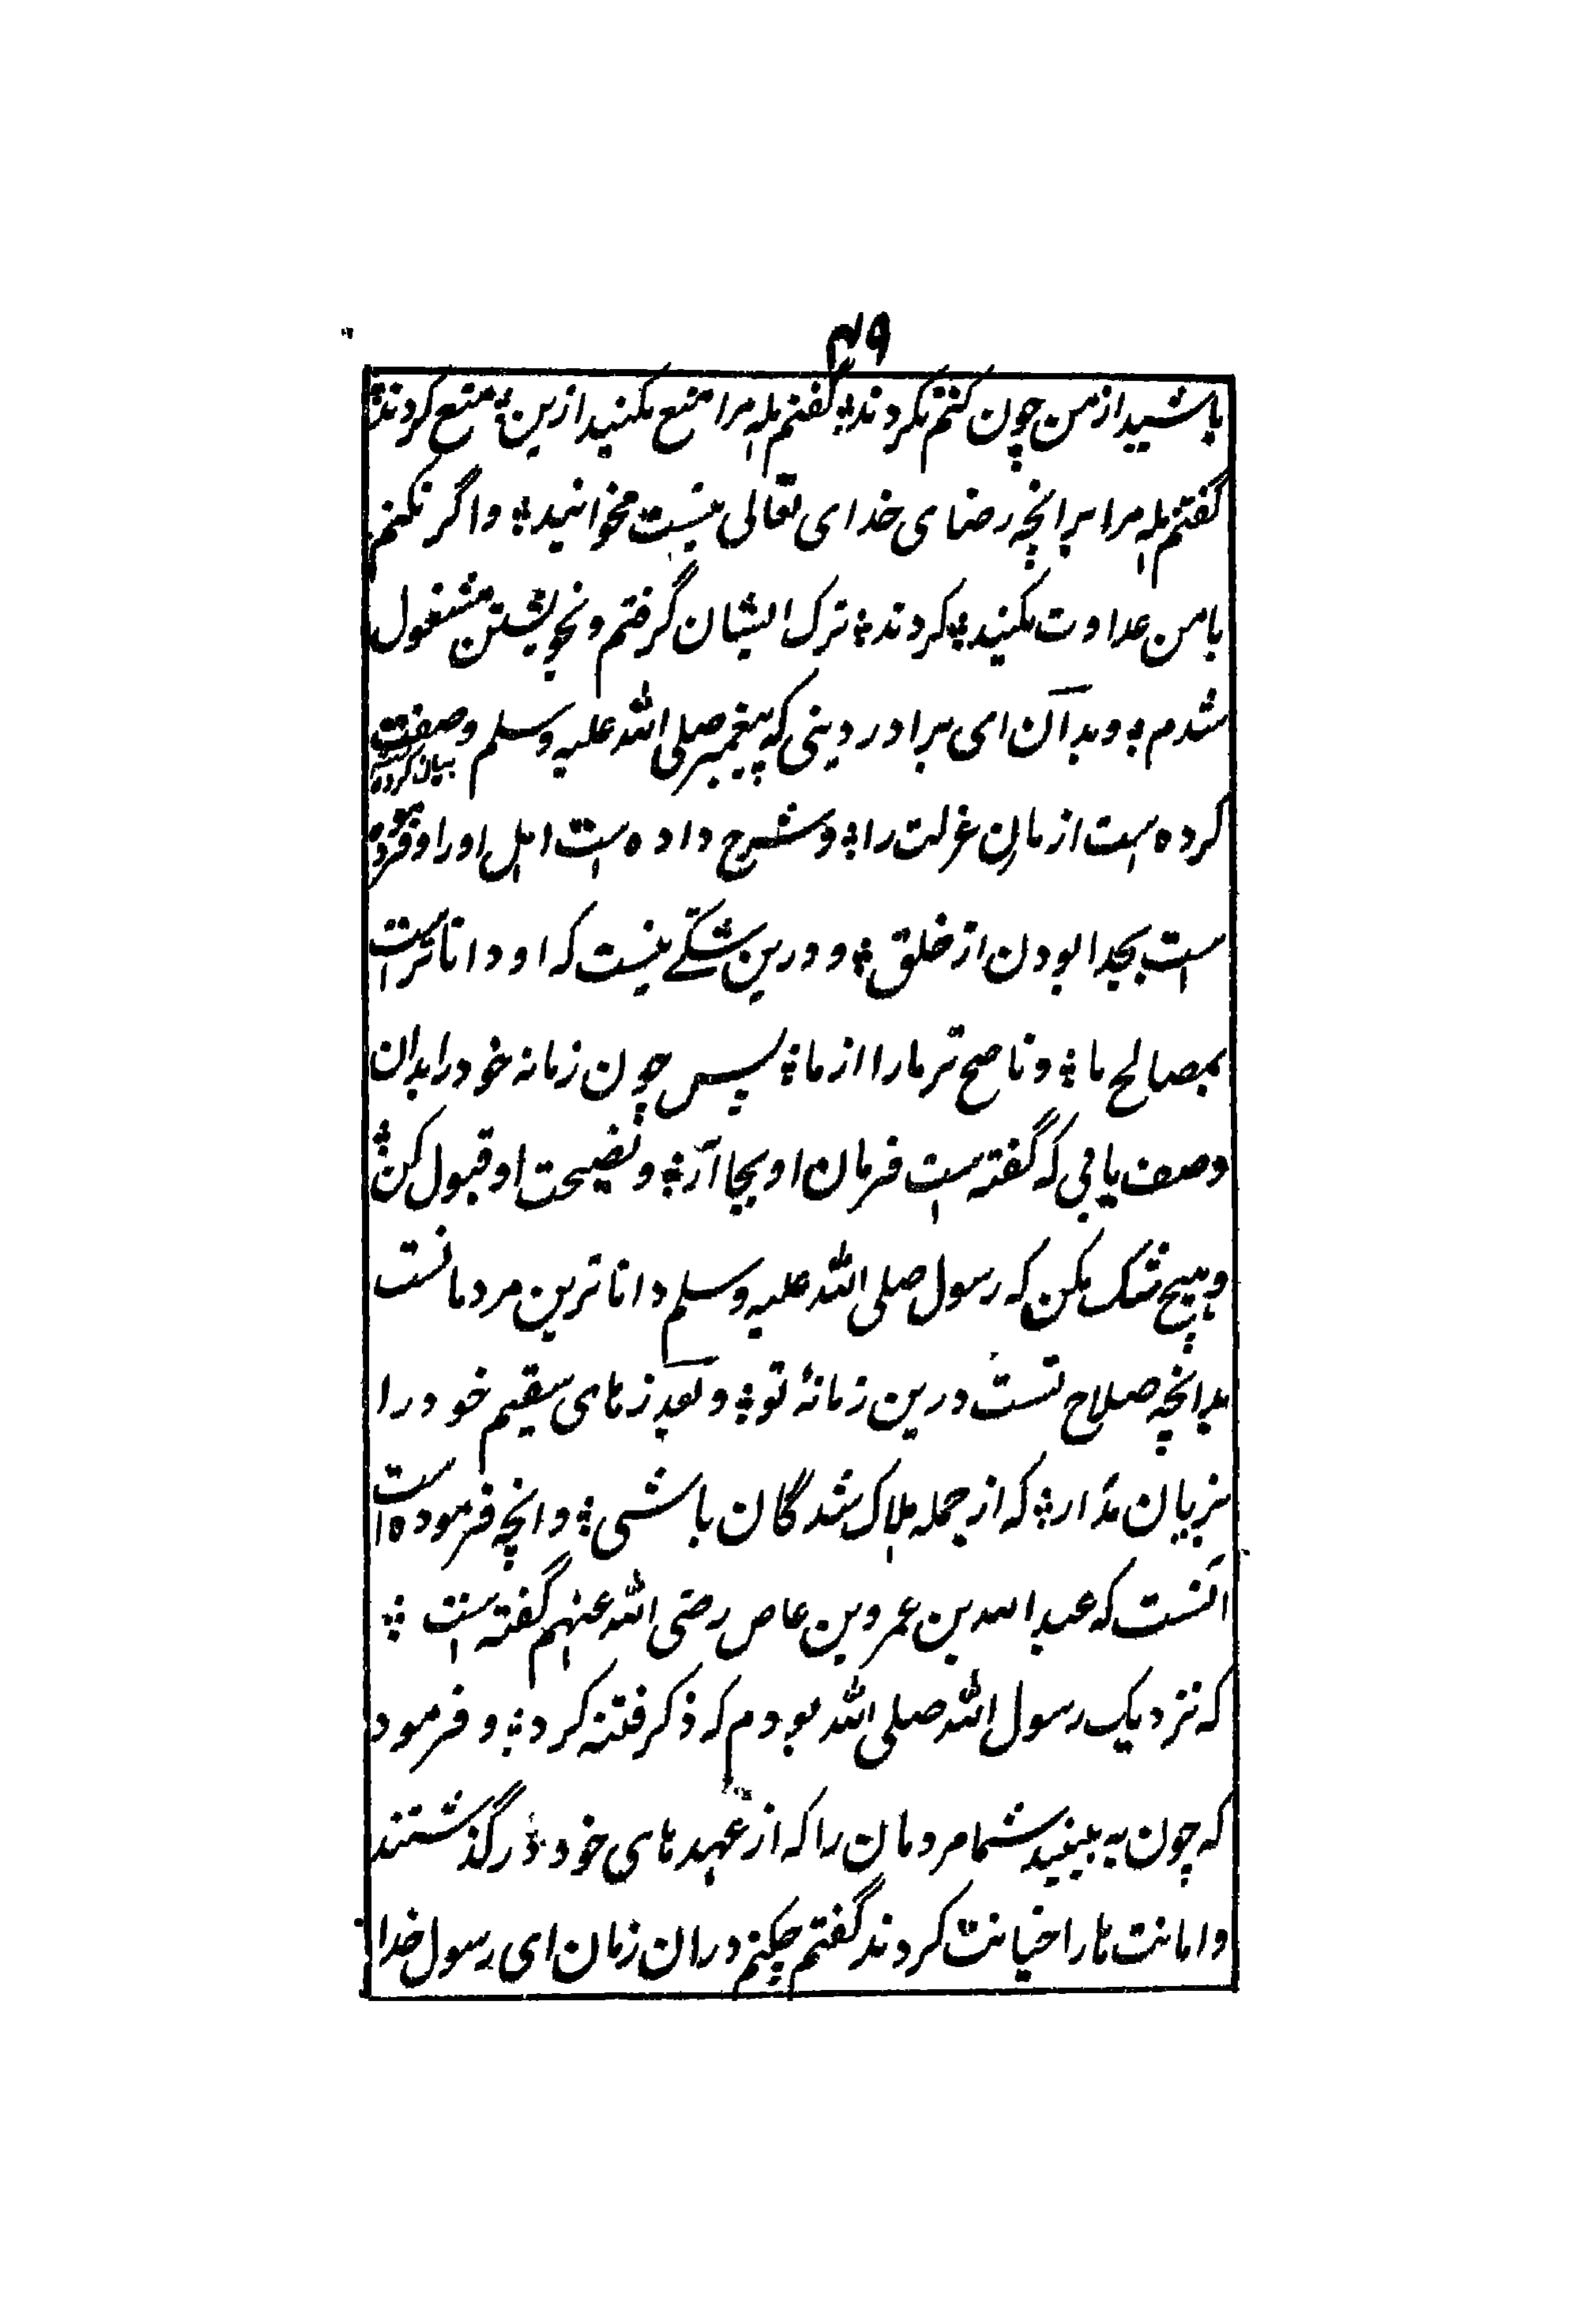 ۴۹
باشید از من چون کنم نکردند؛ گفتم پله مرا منع مکنید ازین؛ منع کردند؛
گفتم پله مرا برانچه رضای خدای تعالی نیست مخوانید؛ واگر نکنم
بامن عداوت مکنید؛ کردند؛ ترک ایشان گرفتم و بخویشتن مشغول
شدم؛ وبدآن ای برادر دینی که پیغمبر صلی الله علیه وسلم وصفت بیان کرده
کرده است از مان عزلت را؛ وشرح داده است اهل اورا و فرموده
است بجدا بودن از خلق؛ و درین شکے نیست که او دانا تراست
بمصالح ما؛ و ناصح تر مارا از ما؛ پس چون زمانه خود را بدان
وصف یابی که گفته است فرمان او بجا آر؛ و نصیحت او قبول کن؛
وهیچ شک مکن که رسول صلی الله علیه وسلم داناترین مردمانست
بدانچه صلاح تست درین زمانۂ تو؛ و بعذرهای سقیم خود را
بزیان مدار؛ که از جمله هلاک شدگان باشی؛ وانچه فرموده است
آنست که عبدالله بن عمرو بن عاص رضی الله عنهم گفته است؛
که نزدیک رسول الله صلی الله بودم که ذکر فتنه کرد؛ و فرمود
که چون به بینید شما مردمان را که از عهدهای خود درگذشتند
وامانت هارا خیانت کردند گفتم چکنم دران زمان ای رسول خدا